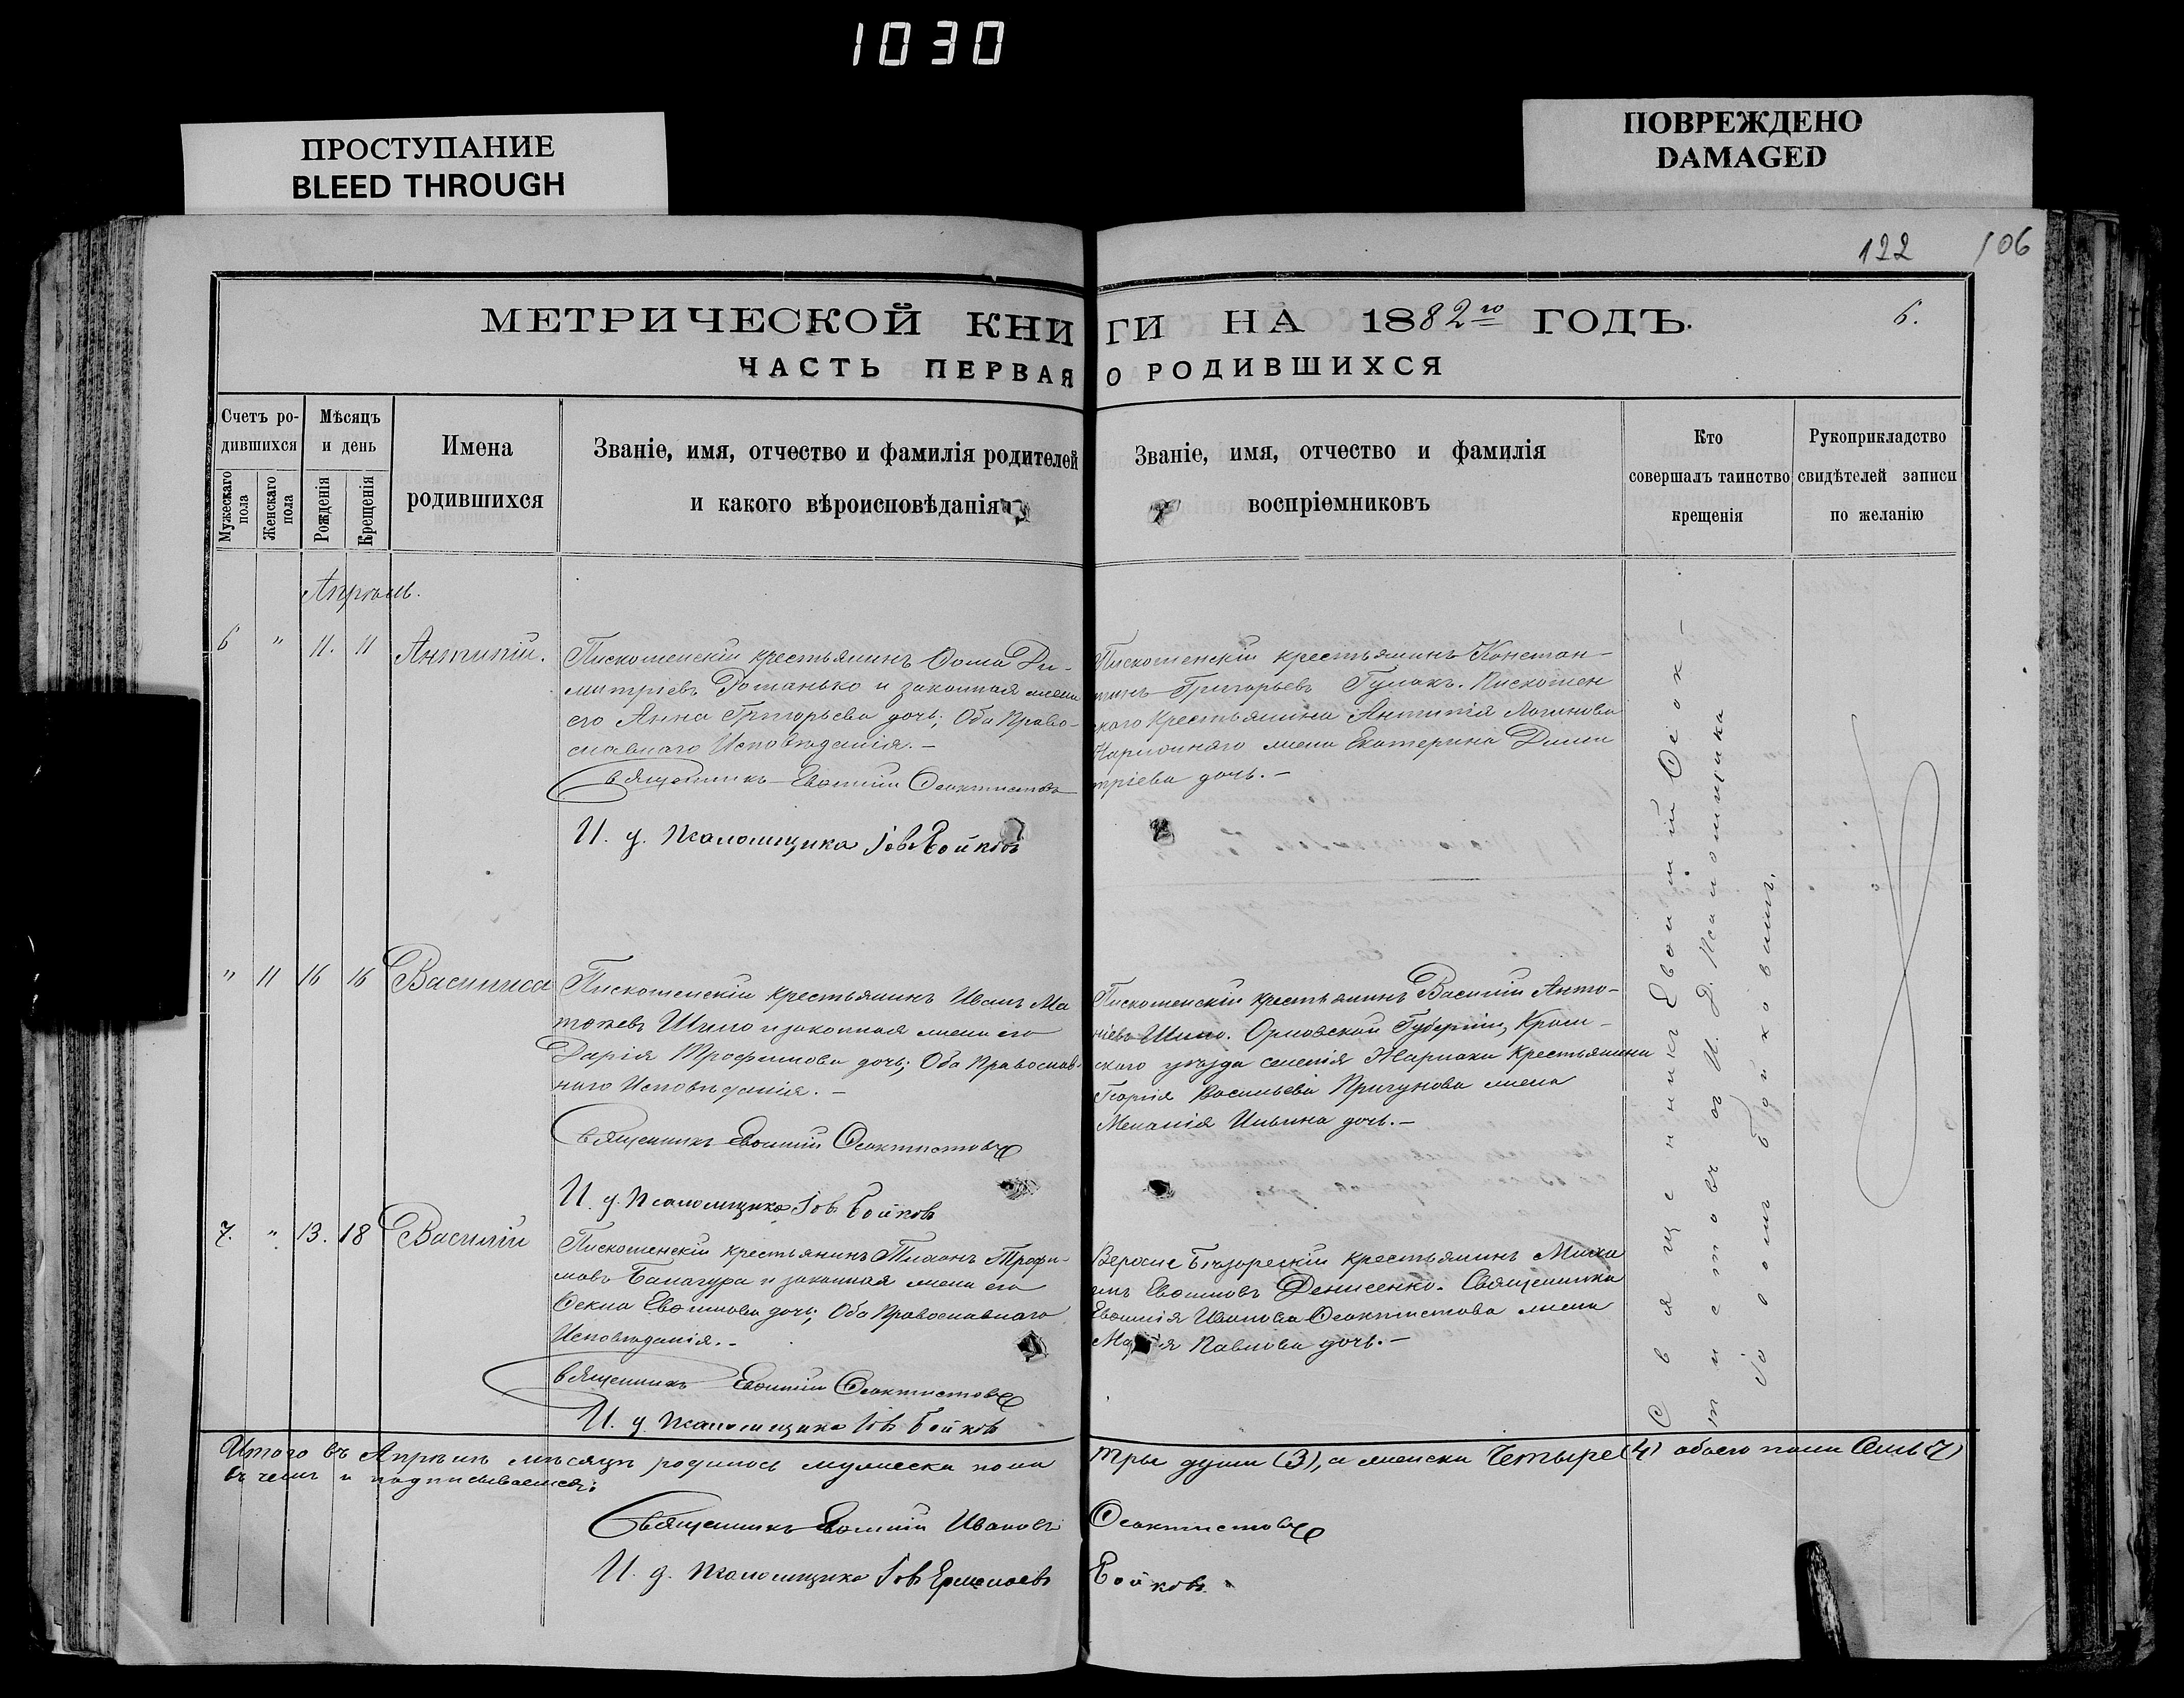 1030
ПРОСТУПАНИЕ
BLEED THROUGH
ПОВРЕЖДЕНО
DAMAGED
122 106
МЕТРИЧЕСКОЙ КНИГИ НА 1882го ГОДЪ.
6.
ЧАСТЬ ПЕРВАЯ О РОДИВШИХСЯ
Счетъ ро-
дившихся
Мужескаго пола
Женскаго пола
Мѣсяцъ
и день
Рожденія
Крещенія
Имена
родившихся
Званіе, имя, отчество и фамилія родителей
и какого вѣроисповѣданія
Званіе, имя, отчество и фамилія
воспріемниковъ
Кто
совершалъ таинство
крещенія
Рукоприкладство
свидѣтелей записи
по желанію
Апрѣль.
6 " 11. 11 Антипій.
Пискошенскій крестьянинъ Ѳома Ди-
митріевъ Романько и законная жена
его Анна Григорьева дочь; Оба Право-
славнаго Исповѣданія. –
Священникъ Евѳимій Ѳеоктистовъ
И. д. Псаломщика Іовъ Бойковъ
Пискошенскій крестьянинъ Констан-
тинъ Григорьевъ Гулакъ. Пискошен
скаго Крестьянина Антипія Логинова
жена Екатерина Дими
тріева дочь. –
" 11 16 16 Василиса
Пискошенскій крестьянинъ Иванъ Ма
тоѳевъ Шило и законная жена его
Дарія Трофимова дочь; Оба Православ-
наго Исповѣданія. –
Священникъ Евѳимій Ѳеоктистовъ
И. д. Псаломщика Іовъ Бойковъ
Пискошенскій крестьянинъ Василій Анто-
ніевъ Шило. Орловской Губерніи, Кром-
скаго уѣзда селенія Крестьянина
Георгія Васильева жена
Меланія Ильина дочь. –
7. " 13. 18 Василій
Пискошенскій крестьянинъ Тихонъ Трофи-
мовъ Балагура и законная жена его
Ѳекла Евѳимова дочь; Оба Православнаго
Исповѣданія. –
Священникъ Евѳимій Ѳеоктистовъ
И. д. Псаломщика Іовъ Бойковъ
крестьянинъ Миха
илъ Евѳимовъ Денисенко. Священника
Евѳимія Иванова Ѳеоктистова жена
Марія Павлова дочь. –
Священникъ Евѳимій Ѳеок-
тистовъ съ И. Д. Псаломщика
Іовомъ Бойковымъ.
Итого въ Апрѣлѣ мѣсяцѣ родилось мужеска пола три души (3), а женска Четыре (4) обоего пола Семь (7)
въ чемъ и подписываемся:
Священникъ Евѳимій Ивановъ Ѳеоктистовъ
И. д. Псаломщика Іовъ Ермолаевъ Бойковъ.